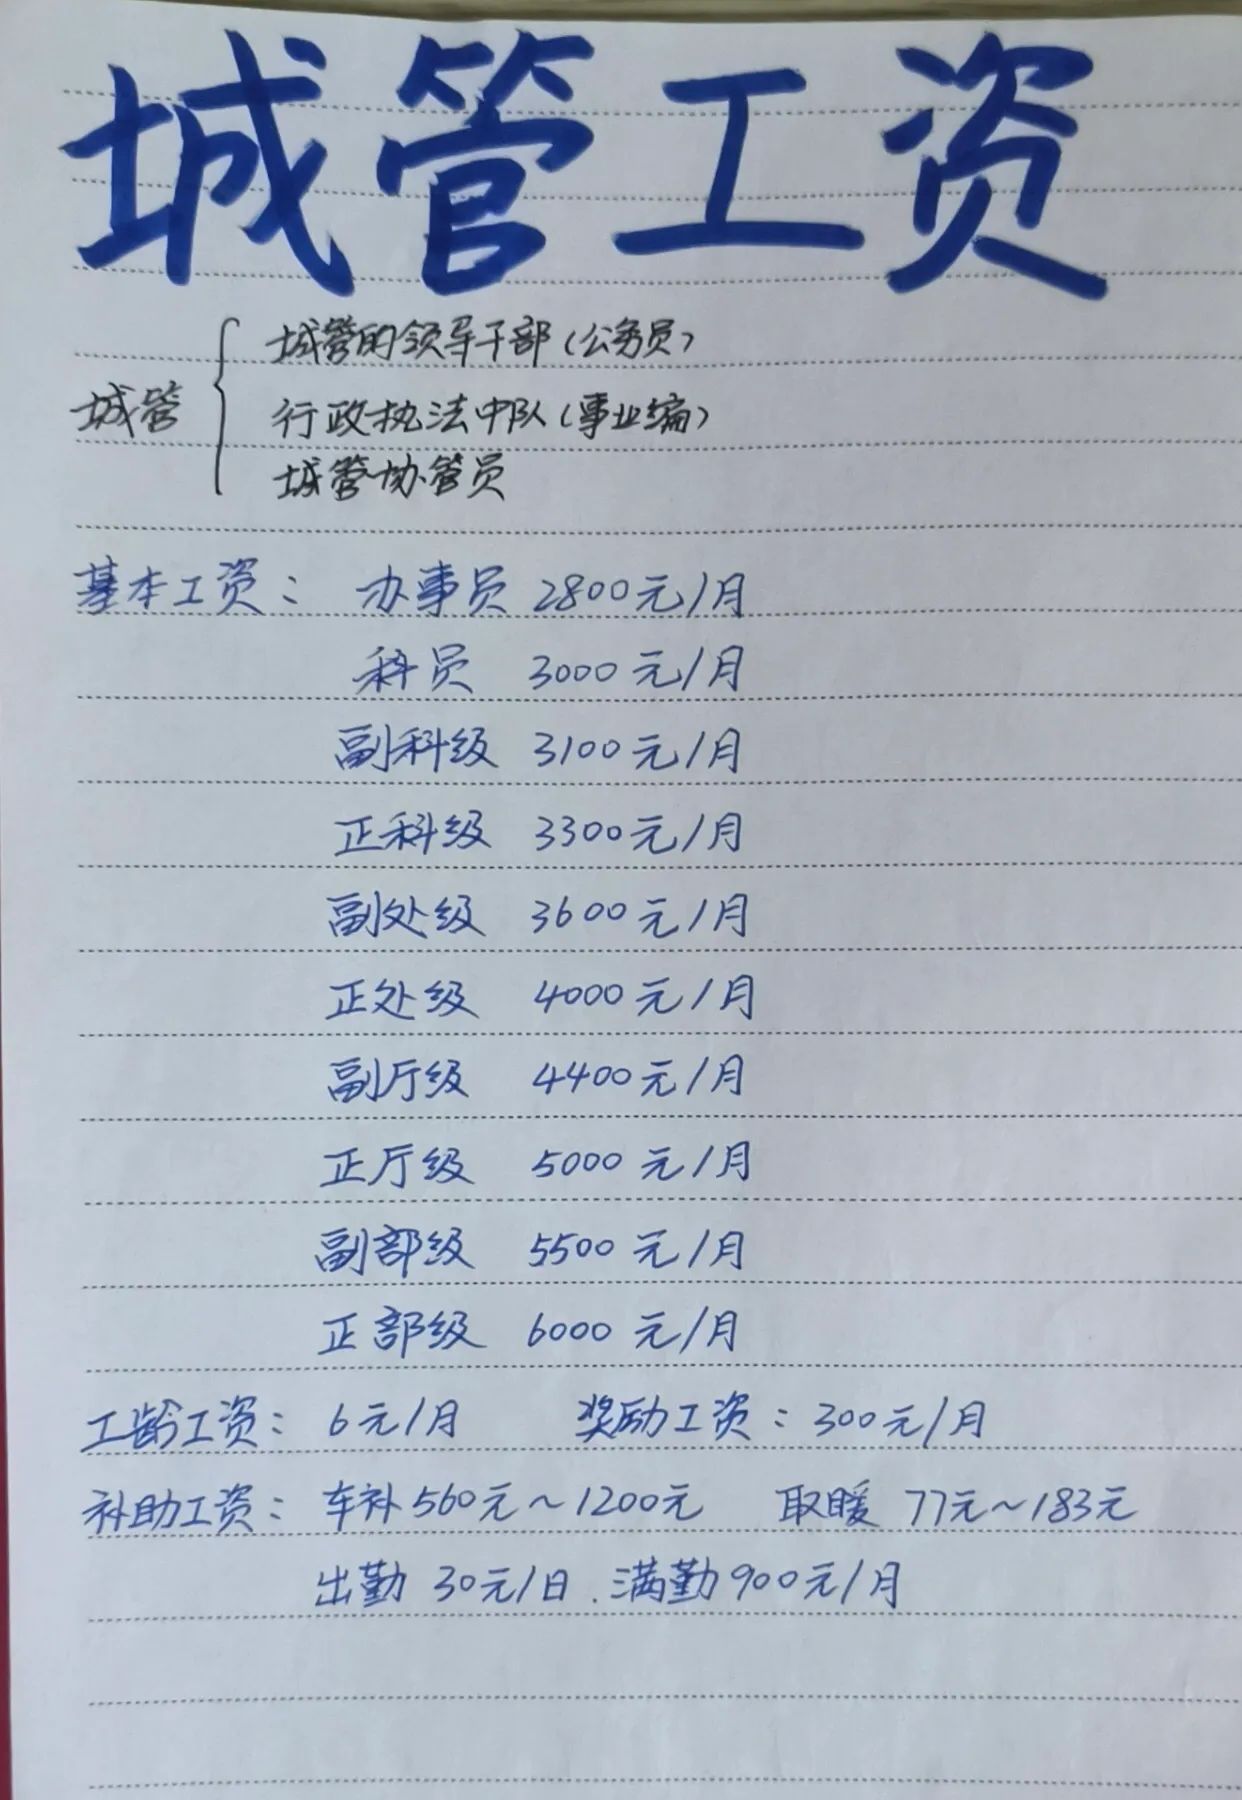 城管工资
城管的领导干部(公务员)
城管
行政执法中队(事业编)
城管协管员
基本工资: 办事员 2800元/月
科员 3000元/月
副科级 3100元/月
正科级 3300元/月
副处级 3600元/月
正处级 4000元/月
副厅级 4400元/月
正厅级 5000元/月
副部级 5500元/月
正部级 6000元/月
工龄工资: 6元/月 奖励工资: 300元/月
补助工资: 车补560元~1200元 取暖 77元~183元
出勤 30元/日、满勤900元/月